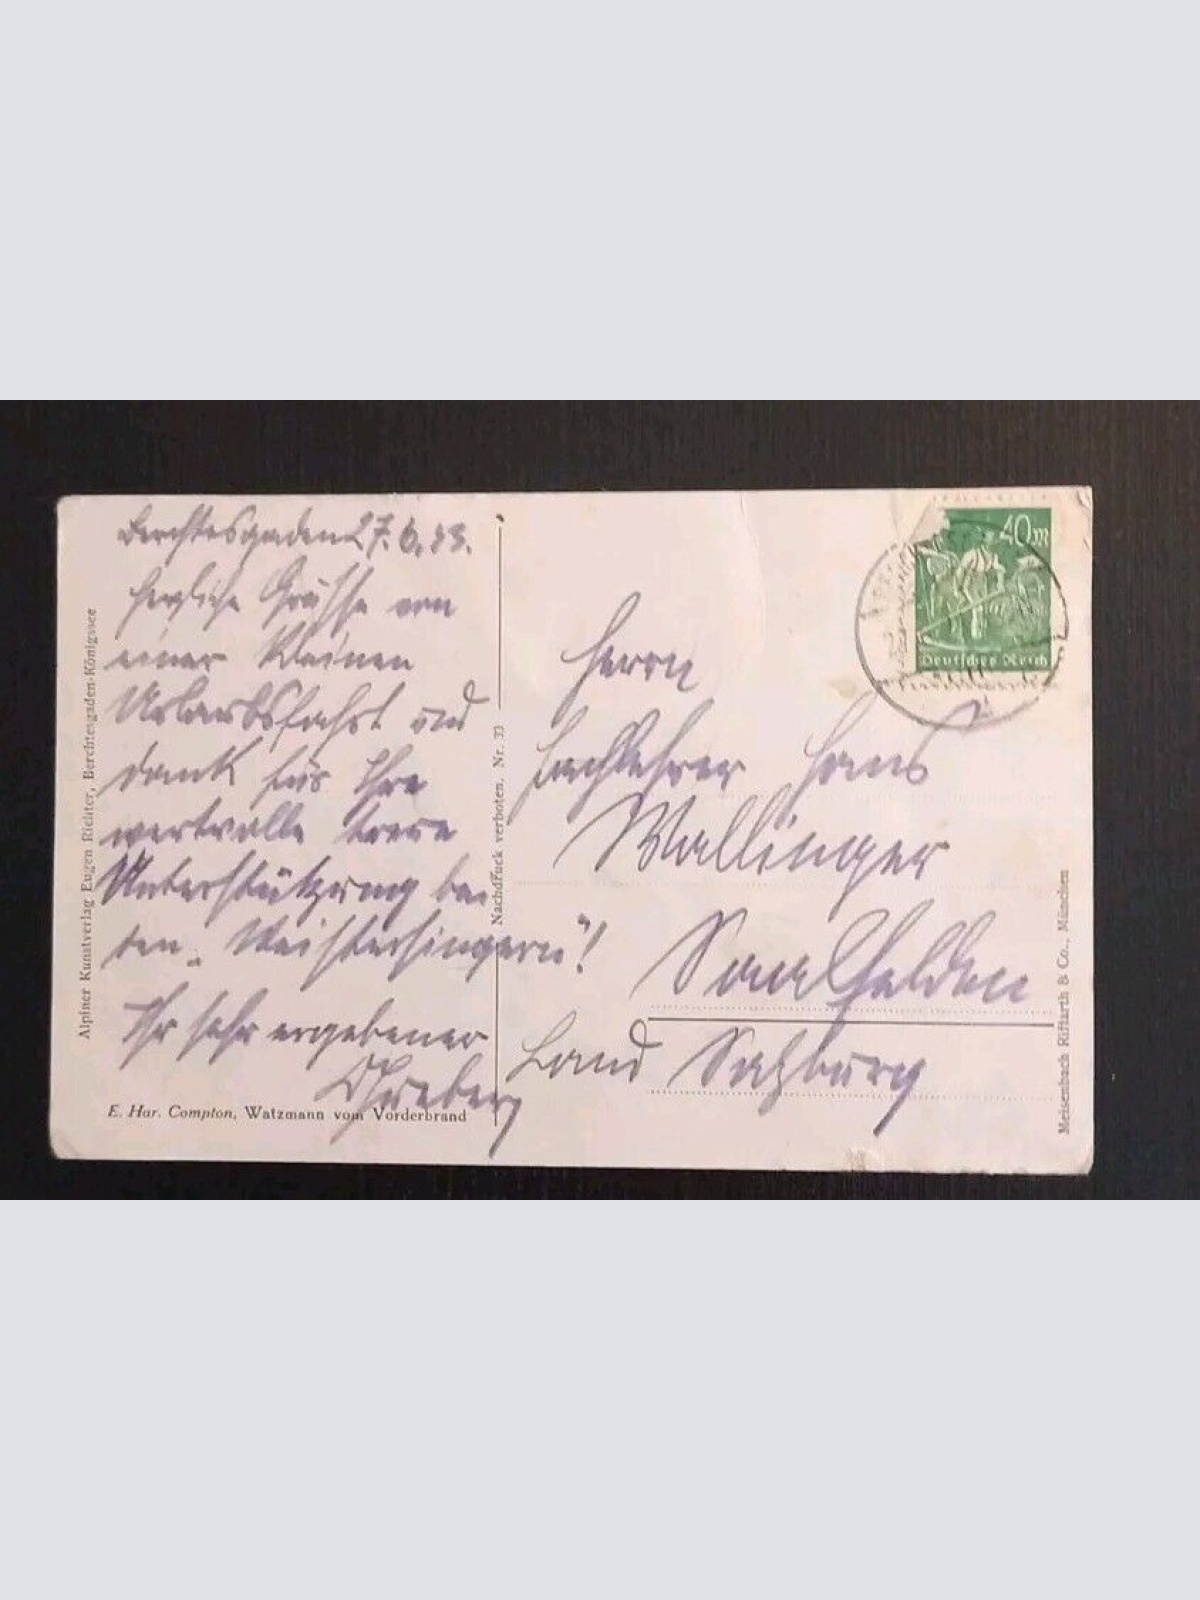 Berchtesgaden 27.6.23.
Herzliche Grüsse von
einer kleinen
Urlaubsfahrt und
Dank für Ihre
wertvolle treue
Unterstützung bei
den „Meistersingern"!
Ihr sehr ergebener
E. Har. Compton, Watzmann vom Vorderbrand
Alpiner Kunstverlag Eugen Richter, Berchtesgaden-Königssee
Nachdruck verboten. Nr. 33
40 M
Deutsches Reich
Herrn
Fachlehrer Hans
Wallinger
Saalfelden
Land Salzburg
Meisenbach Riffarth & Co., München